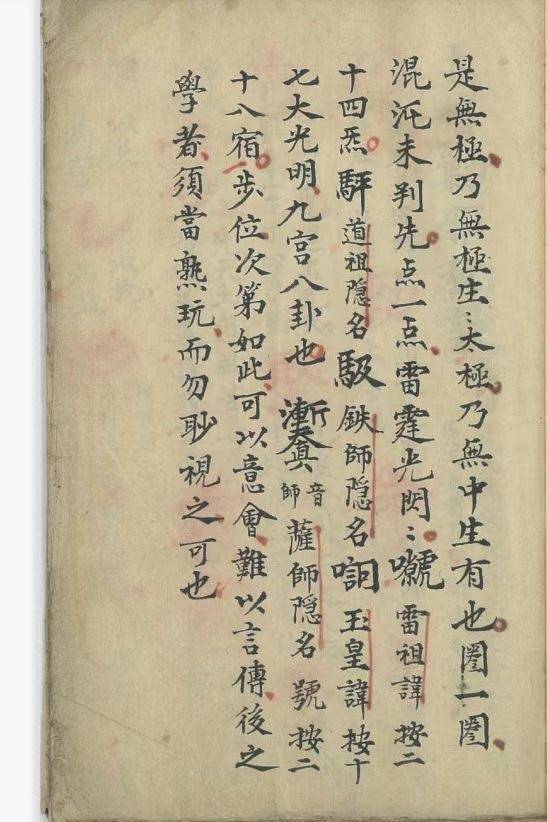 是無極乃無極生〻太極乃無中生有也圏一圏
混沌未判先点一点雷霆光閃〻雷祖諱按二
十四炁道祖隐名馺鉄師隐名玉皇諱按十
七大光明九宮八卦也音師薩師隐名號按二
十八宿步位次第如此可以意會難以言傳後之
學者須當熟玩而勿耹視之可也